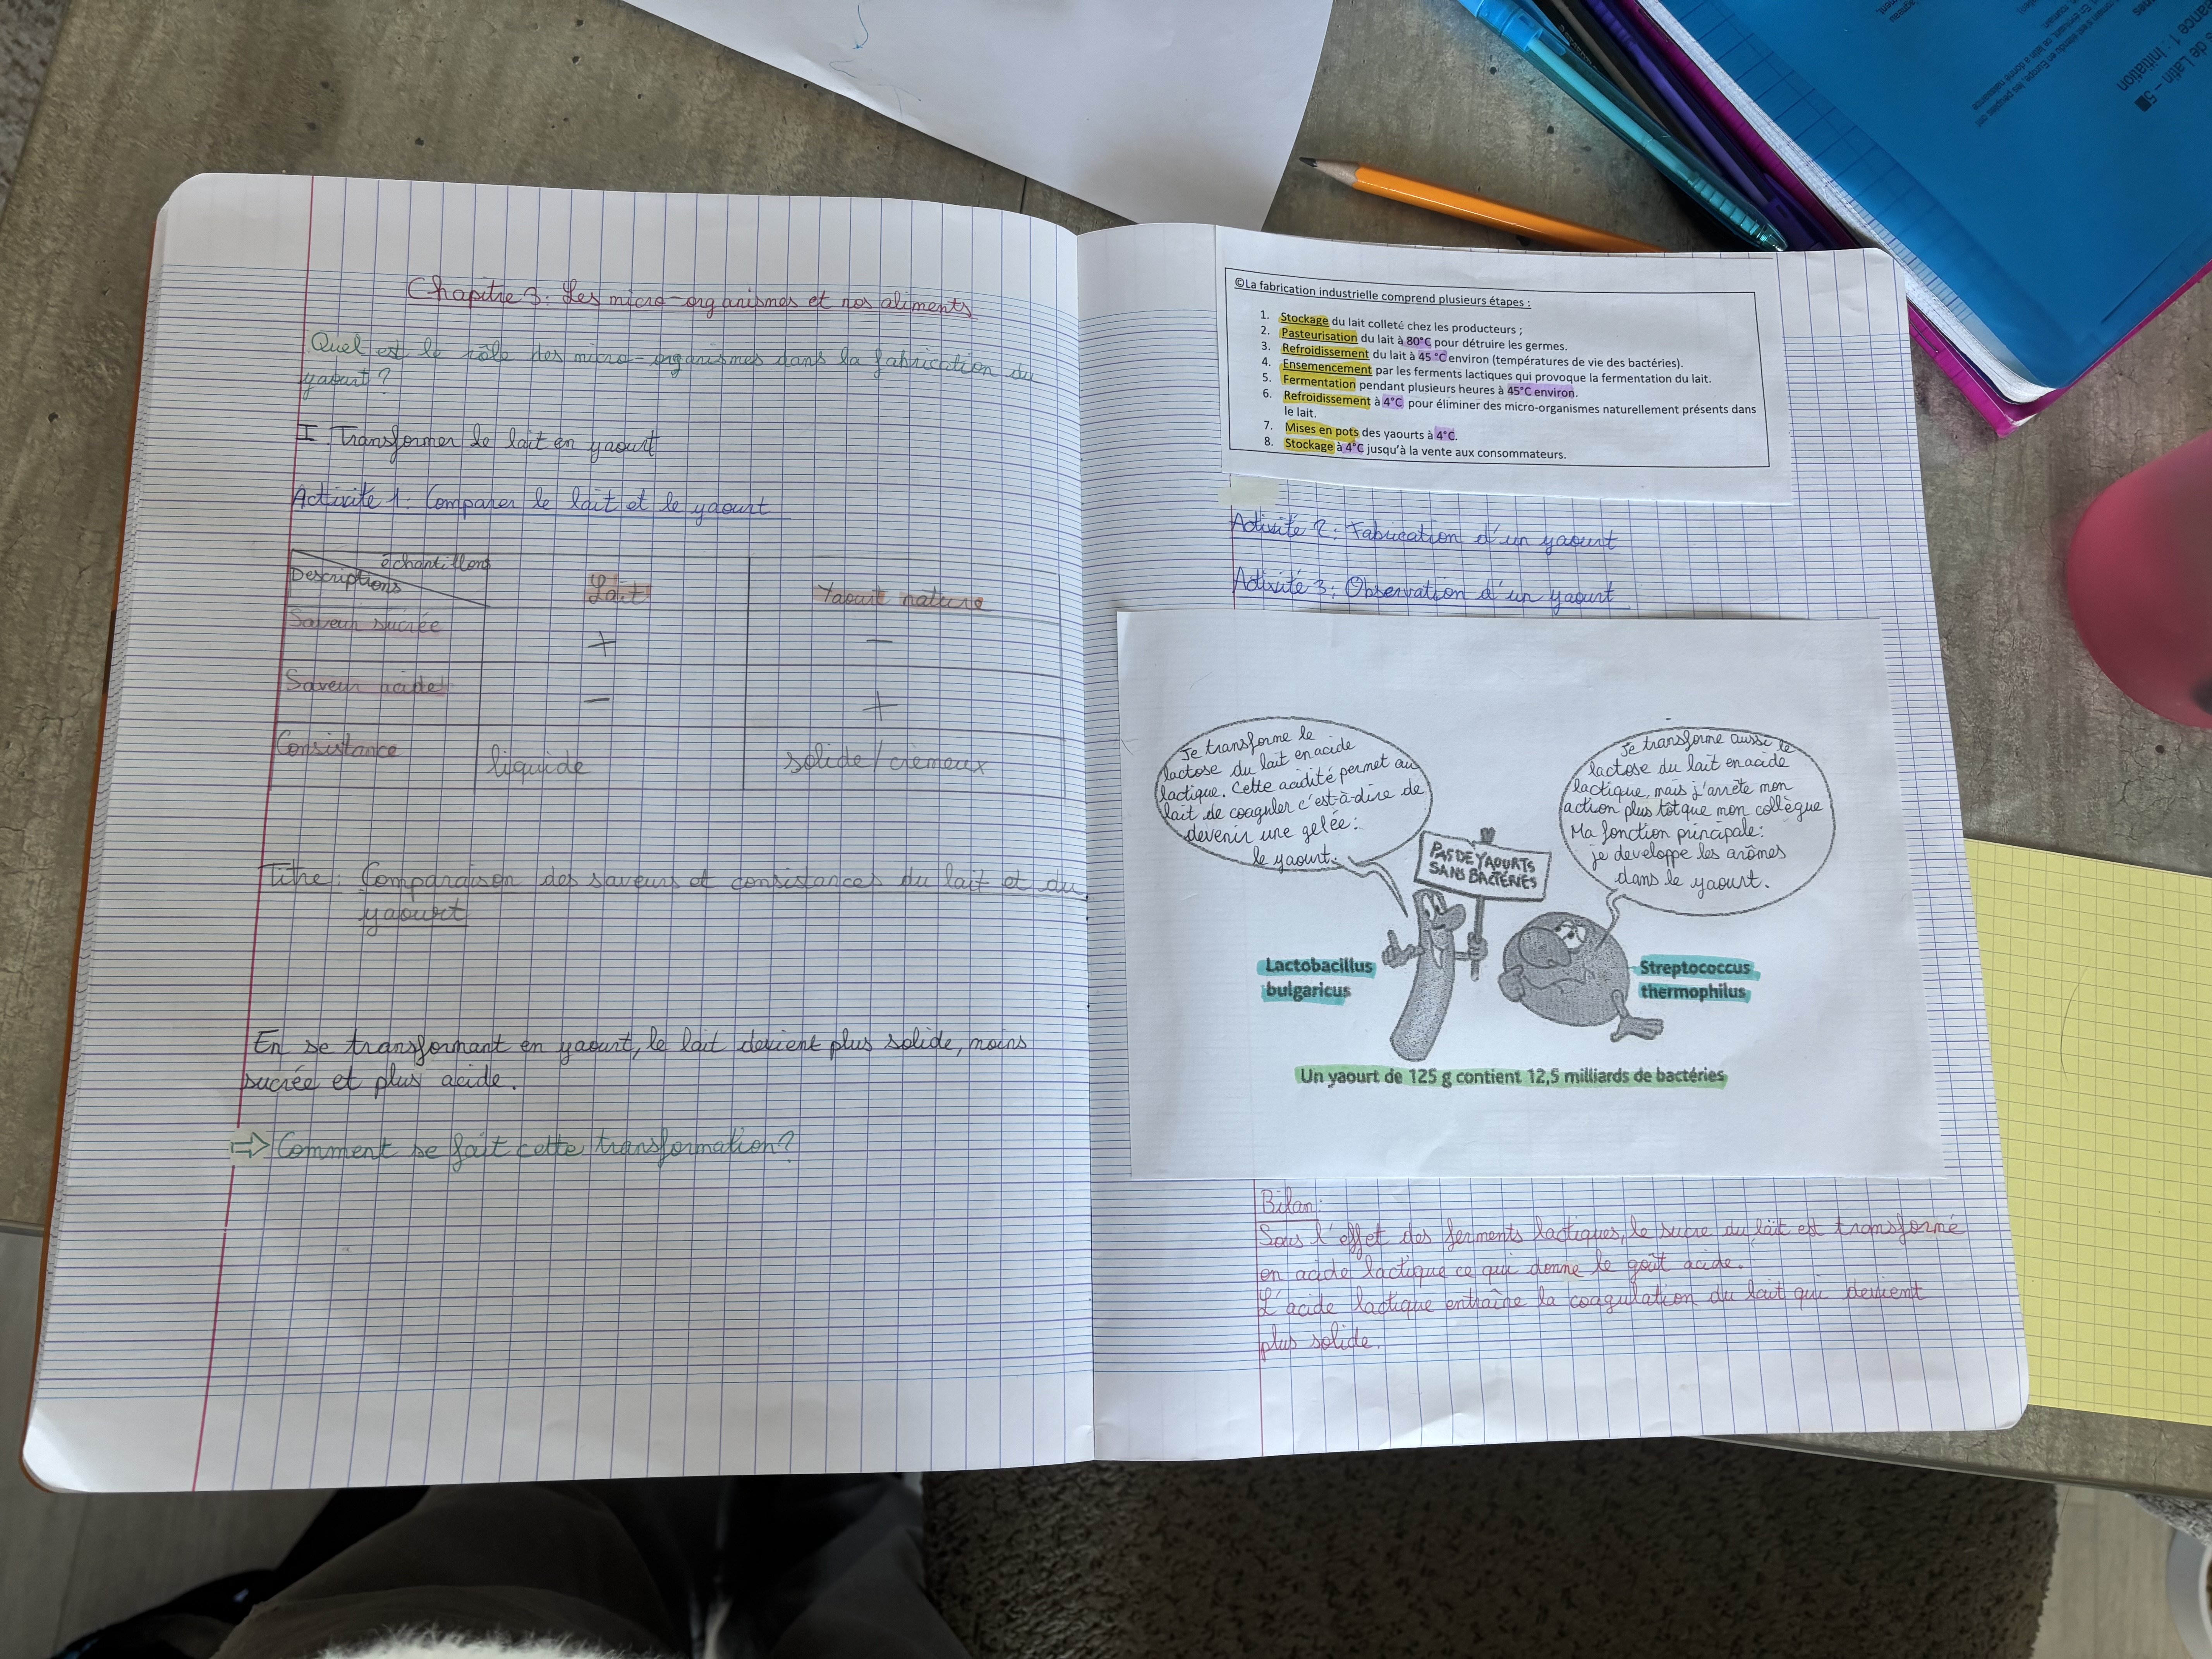 Chapitre 3: Les micro-organismes et nos aliments
Quel est le rôle des micro-organismes dans la fabrication du
yaourt?
I. Transformer le lait en yaourt
Activité 1: Comparer le lait et le yaourt
échantillons
Descriptions
Lait
Yaourt nature
Saveur sucrée
+
-
Saveur acide
-
+
Consistance
liquide
solide/crémeux
Titre: Comparaison des saveurs et consistances du lait et du
yaourt
En se transformant en yaourt, le lait devient plus solide, moins
sucrée et plus acide.
⇒ Comment se fait cette transformation?
©La fabrication industrielle comprend plusieurs étapes :
1. Stockage du lait colleté chez les producteurs ;
2. Pasteurisation du lait à 80°C pour détruire les germes.
3. Refroidissement du lait à 45 °C environ (températures de vie des bactéries).
4. Ensemencement par les ferments lactiques qui provoque la fermentation du lait.
5. Fermentation pendant plusieurs heures à 45°C environ.
6. Refroidissement à 4°C pour éliminer des micro-organismes naturellement présents dans
le lait.
7. Mises en pots des yaourts à 4°C.
8. Stockage à 4°C jusqu'à la vente aux consommateurs.
Activité 2: Fabrication d'un yaourt
Activité 3: Observation d'un yaourt
Je transforme le
lactose du lait en acide
lactique. Cette acidité permet au
lait de coaguler c'est-à-dire de
devenir une gelée:
le yaourt.
PAS DE YAOURTS
SANS BACTÉRIES
Je transforme aussi le
lactose du lait en acide
lactique, mais j'arrête mon
action plus tôt que mon collègue
Ma fonction principale:
je developpe les arômes
dans le yaourt.
Lactobacillus
bulgaricus
Streptococcus
thermophilus
Un yaourt de 125 g contient 12,5 milliards de bactéries
Bilan:
Sous l'effet des ferments lactiques, le sucre du lait est transformé
en acide lactique ce qui donne le goût acide.
L'acide lactique entraîne la coagulation du lait qui devient
plus solide.
de Latin - 5
ance 1 : Initiation